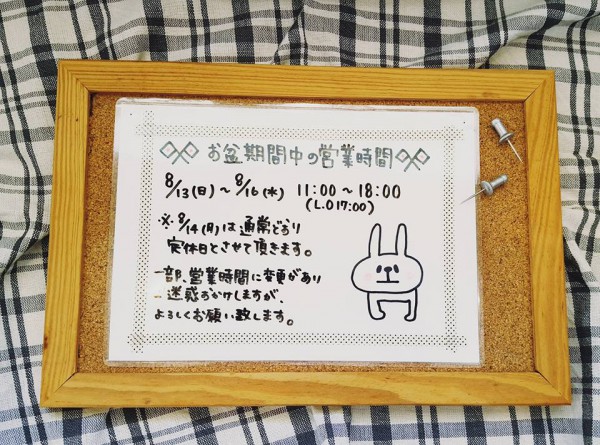 お盆期間中の営業時間
8/13(日)〜8/16(水) 11:00〜18:00
(L.O 17:00)
※8/14(月)は通常どおり
定休日とさせて頂きます。
一部、営業時間に変更があり
ご迷惑おかけしますが、
よろしくお願い致します。